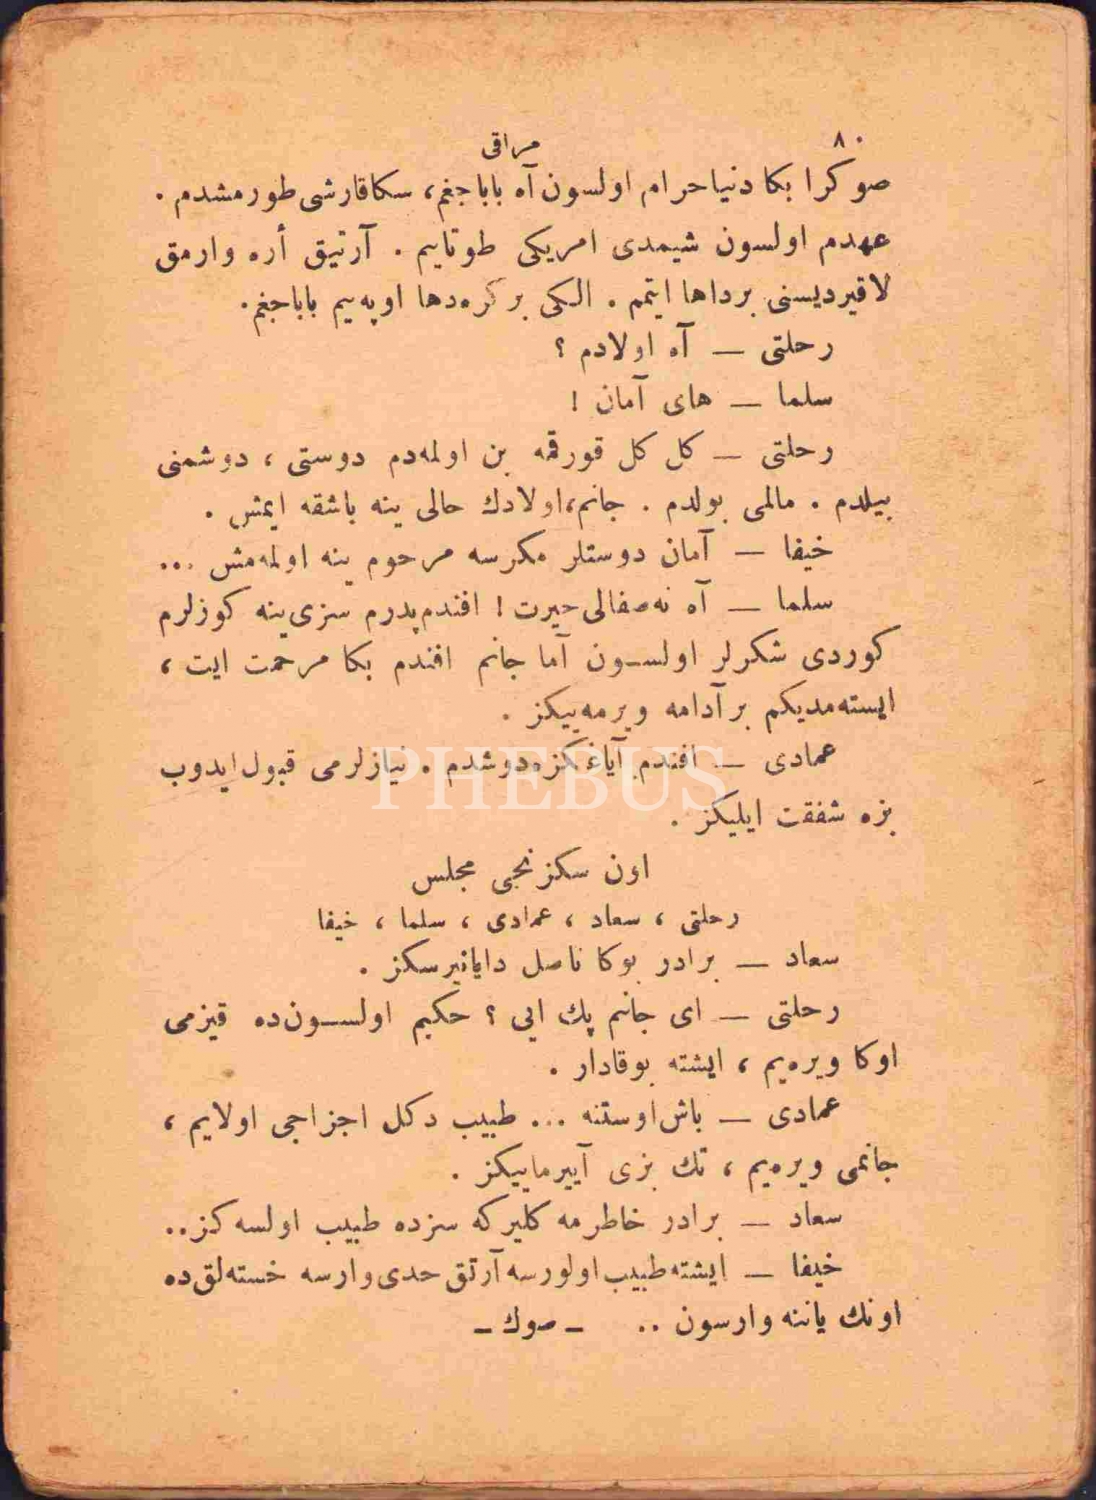 ٨٠
مراقى
صوكرا بكا دنيا حرام اولسون آه باباجغم، سكا قارشى طورمشدم .
عهدم اولسون شيمدى امريكى طوتايم . آرتيق أره وارمق
لاقيرديسنى برداها ايتمم . الكى بر كره دها اوپه يم باباجغم.
رحلتى — آه اولادم ؟
سلما — هاى آمان !
رحلتى — كل كل قورقمه بن اولمه دم دوستى ، دوشمنى
بيلدم . مالمى بولدم . جانم، اولادك حالى ينه باشقه ايمش .
خيفا — آمان دوستلر مكرسه مرحوم ينه اولمه مش ...
سلما — آه نه صفالى حيرت ! افندم پدرم سزى ينه كوزلرم
كوردى شكرلر اولسون آما جانم افندم بكا مرحمت ايت ،
ايسته مديكم بر آدامه ويرمه ييكز .
عمادى — افندم آياغكزه دوشدم . نيازلرمى قبول ايدوب
بزه شفقت ايليكز .
PHEBUS
اون سكزنجى مجلس
رحلتى ، سعاد ، عمادى ، سلما ، خيفا
سعاد — برادر بوكا ناصل دايانيرسكز .
رحلتى — اى جانم پك ايى ؟ حكيم اولسون ده قيزمى
اوكا ويره يم ، ايشته بوقادار .
عمادى — باش اوستنه ... طبيب دكل اجزاجى اولايم ،
جانمى ويره يم ، تك بزى آييرماييكز .
سعاد — برادر خاطرمه كلير كه سزده طبيب اولسه كز..
خيفا — ايشته طبيب اولورسه آرتق حدى وارسه خسته لق ده
اونك ياننه وارسون .. — صوك —